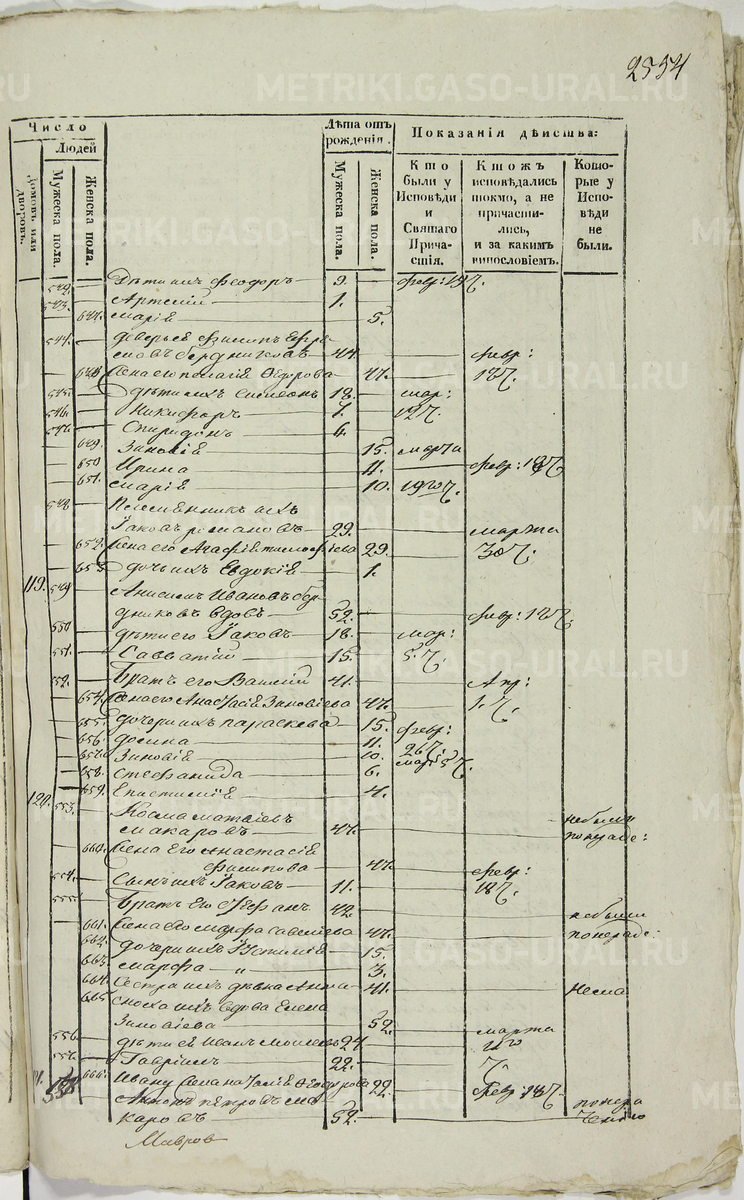 2554
METRIKI.GASO-URAL.RU
Число
Людей
Домовъ или дворовъ.
Мужеска пола.
Женска пола.
Лѣта отъ рожденія.
Мужеска пола.
Женска пола.
Показанія дѣйства:
Кто были у Исповѣди и Святаго Причастія.
Ктожъ исповѣдались токмо, а не причастились, и за какимъ винословіемъ.
Которые у Исповѣди не были.
542. Дѣти ихъ Феодоръ 9. февр: 19
543. Артемій 1.
647. Марія 5.
544.
мовъ Бердниковъ 44. февр:
648 Жена его Пелагія Федорова 47. 18
545. дѣти ихъ Симеонъ 18. мар:
546. Никифоръ 7. 12
547. Спиридонъ 6.
649 15. марта
650 Ирина 11. февр: 18
651. Марія 10. 19
548 Племянникъ ихъ
Іаковъ Романовъ 29. марта
652. Жена его Агафія 29. 30
653 дочь ихъ Евдокія 1.
119. 549 Анисимъ Ивановъ Бер
дниковъ вдовъ 52. февр: 18
550 дѣти его Іаковъ 18. мар:
551. Савватій 15. 5.
552. Братъ его Василій 41. Апр:
654. Жена его Анастасія Зиновіева 47. 1.
655. дочери ихъ Параскева 15. февр:
656. Домна 11. 26
657. Зиновія 10.
658. Стефанида 6.
659. Епистимія 4.
120. 553. Косма Матѳіевъ
Макаровъ 47. небыли
660. Жена Его Анастасія
Филипова 47. февр:
554. Сынъ ихъ Іаковъ 11. 18
555 Братъ Его Стефанъ 42. небыли
661. Жена его Марфа Савеліева 47.
662. дочери ихъ Устинія 15.
663. Марфа 3.
664. Сестра ихъ дѣвка Анна 41.
665 сноха ихъ вдова Елена
Зиновіева 52.
556. дѣти ея Иванъ Моисеевъ 24 марта
557. Гавріилъ 22.
666. Ивану жена Наталія Федорова 22. Февр: 18
121. 558 Антонъ Петровъ Ма
каровъ 52.
Мавров